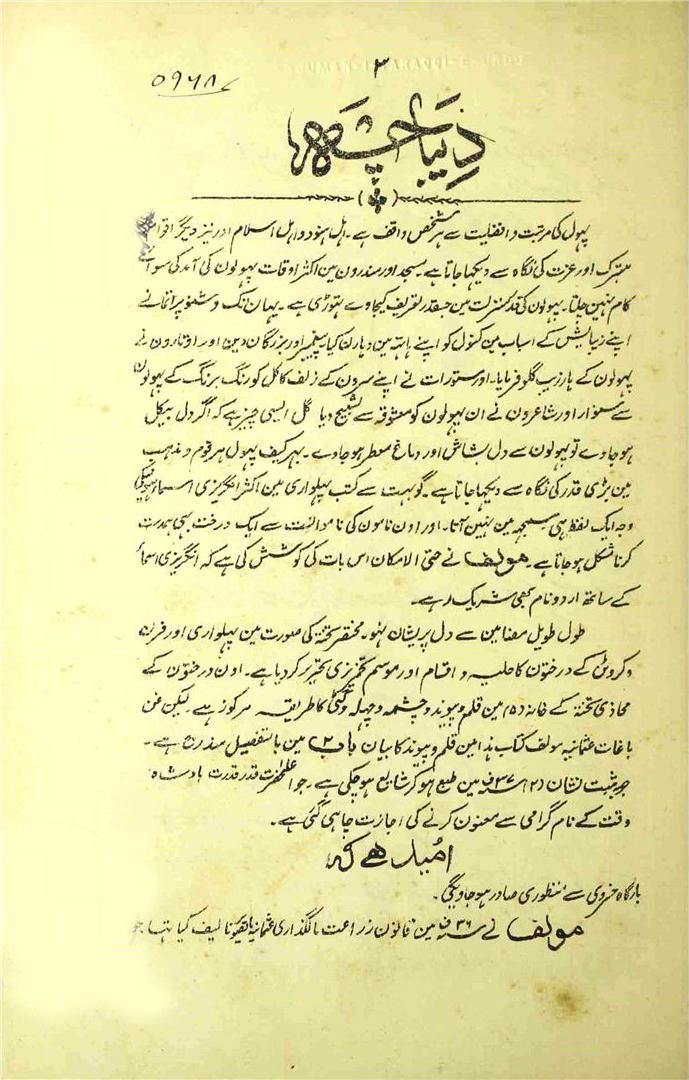 ۳
۰۹۶۸۷
دیباچہ
پہول کی مرتبت و افضلیت سے ہر شخص واقف ہے۔ اہل ہنود و اہل اسلام اور نیز دیگر اقوام
متبرک اور عزت کی نگاہ سے دیکھا جاتا ہے۔ مسجد اور مندرون مین اکثر اوقات پہولون کی آمد کی سوا
کام نہین چلتا۔ پہولون کی قدر و منزلت مین جسقدر تعریف کیجاوے تہوڑی ہے۔ یہان تک وشنو پرماتمانے
اپنے زیبایش کے اسباب مین کنول کو اپنے ہاتہہ مین دہارن کیا۔ پیغمبر اور بزرگان دین اور اوتارون نے
پہولون کے ہار زیب گلو فرمایا۔ اور مستورات نے اپنے سرون کے زلف کاکل کو رنگ برنگ کے پہولون
سے سنوارا اور شاعرون نے ان پہولون کو معشوقہ سے تشبیح دیا گل ایسی چیز ہے کہ اگر دل بیکل
ہوجاوے تو پہولون سے دل بشاش اور دماغ معطر ہو جاوے۔ بہر کیف پہول ہر قوم و مذہب
مین بڑی قدر کی نگاہ سے دیکھا جاتا ہے۔ گو بہت سے کتب پہلواری مین اکثر انگریزی اسمائے ہونیکی
وجہ ایک لفظ ہی سمجھہ مین نہین آتا۔ اور اون نامون کی نامواقفیت سے ایک درخت بہی ہمدست
کرنا مشکل ہو جاتا ہے۔ مولف نے حتی الامکان اس بات کی کوشش کی ہے کہ انگریزی اسمائے
کے ساتھ اردو نام بھی شریک رہے۔
طول طویل مضامین سے دل پریشان نہو۔ مختصر تختہ کی صورت مین پہلواری اور فرن
و کروٹن کے درختون کا حلیہ و اقسام اور موسم تخمریزی تحریر کر دیا ہے۔ اون درختون کے
محاذی تختہ کے خانہ (۵) مین قلم و پیوند و چشمہ و چہلہ و گٹی کا طریقہ مرکوز ہے۔ لیکن فن
باغات عثمانیہ مولف کتاب ہذا مین قلم و پیوند کا بیان باب ۲ مین بالتفصیل مندرج ہے۔
جو مثبت نشان (۲) ۳۷ف مین طبع ہو کر شایع ہو چکی ہے۔ جو اعلٰحضرت قدر قدرت بادشاہ
وقت کے نام گرامی سے معنون کرنے کی اجازت چاہی گئی ہے۔
امید ہے کہ
بارگاہ خسروی سے منظوری صادر ہو جاویگی۔
مولف نے سنہ ۳۶ف مین قانون زراعت مالگذاری عثمانیہ تالیف کیا تہا جو